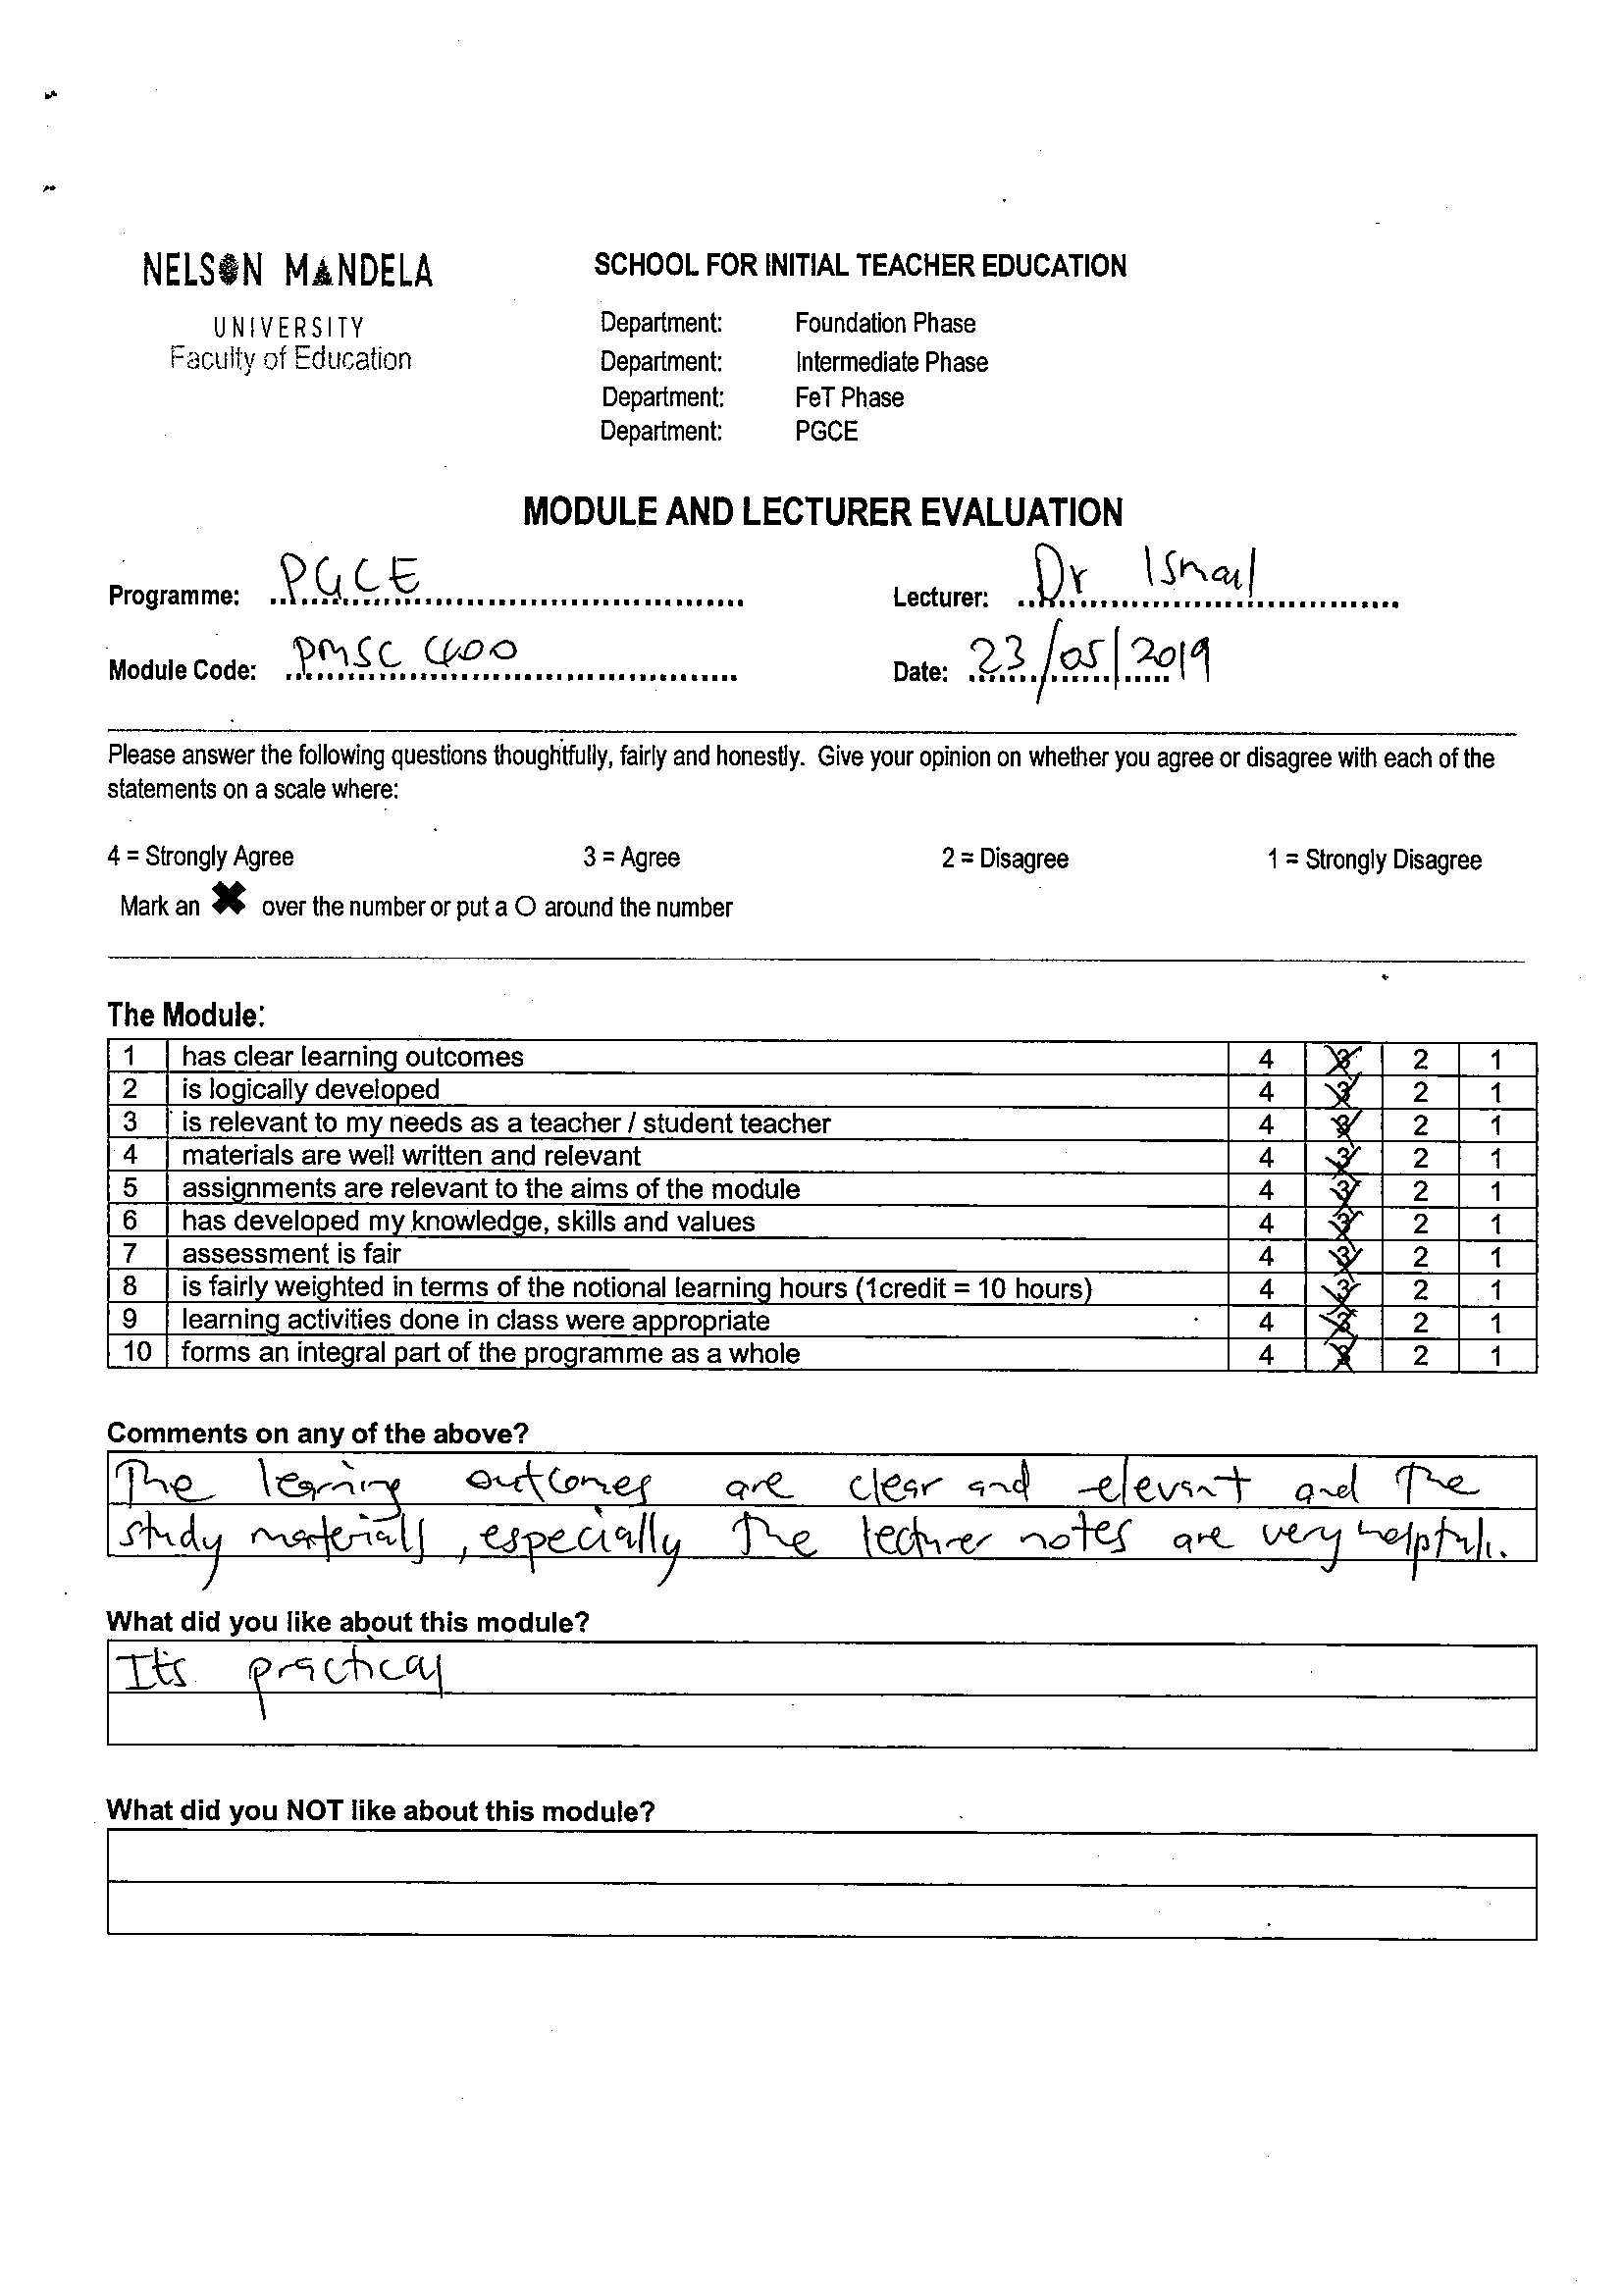 NELSON MANDELA
UNIVERSITY
Faculty of Education
SCHOOL FOR INITIAL TEACHER EDUCATION
Department: Foundation Phase
Department: Intermediate Phase
Department: FeT Phase
Department: PGCE
MODULE AND LECTURER EVALUATION
Programme: PGCE
Lecturer: Dr Ismail
Module Code: PMSC 400
Date: 23/05/2019
Please answer the following questions thoughtfully, fairly and honestly. Give your opinion on whether you agree or disagree with each of the
statements on a scale where:
4 = Strongly Agree 3 = Agree 2 = Disagree 1 = Strongly Disagree
Mark an ✖ over the number or put a O around the number
The Module:
1 has clear learning outcomes 4 3 2 1
2 is logically developed 4 3 2 1
3 is relevant to my needs as a teacher / student teacher 4 3 2 1
4 materials are well written and relevant 4 3 2 1
5 assignments are relevant to the aims of the module 4 3 2 1
6 has developed my knowledge, skills and values 4 3 2 1
7 assessment is fair 4 3 2 1
8 is fairly weighted in terms of the notional learning hours (1credit = 10 hours) 4 3 2 1
9 learning activities done in class were appropriate 4 3 2 1
10 forms an integral part of the programme as a whole 4 3 2 1
Comments on any of the above?
The learning outcomes are clear and relevant and the
study materials, especially the lecturer notes are very helpful.
What did you like about this module?
Its practical
What did you NOT like about this module?